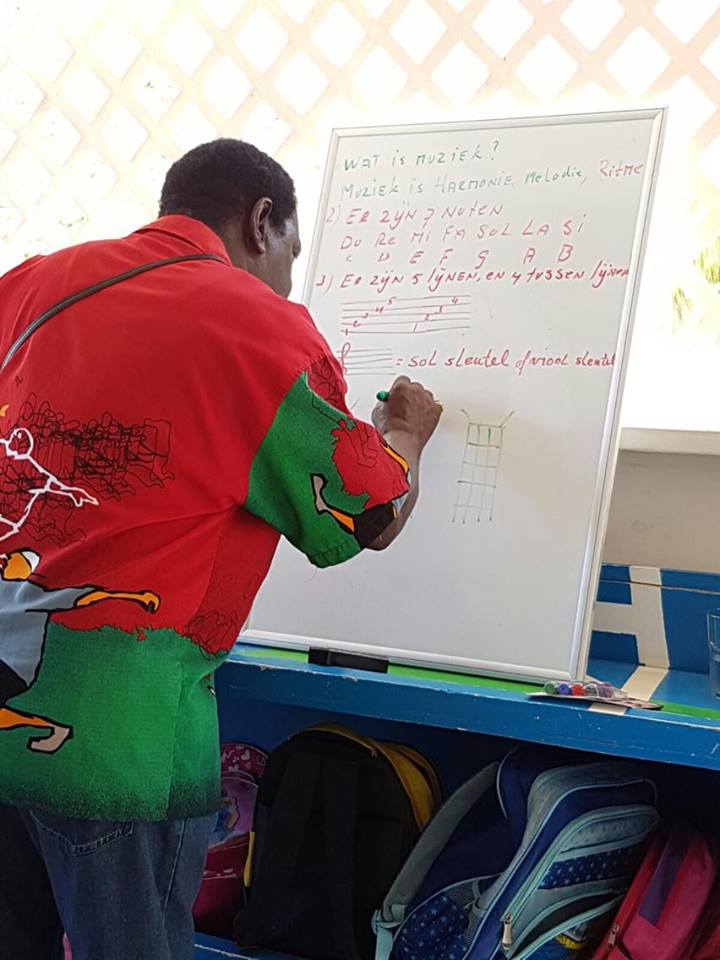 Wat is muziek?
Muziek is HARMONIE, Melodie, Ritme
2) ER zijn 7 NoteN
Do Re Mi FA Sol LA Si
C D E F G A B
3) ER zijn 5 lijnen, en 4 tussen lijnen
1 2 3 4 5 1 2 3 4
= sol sleutel of viool sleutel